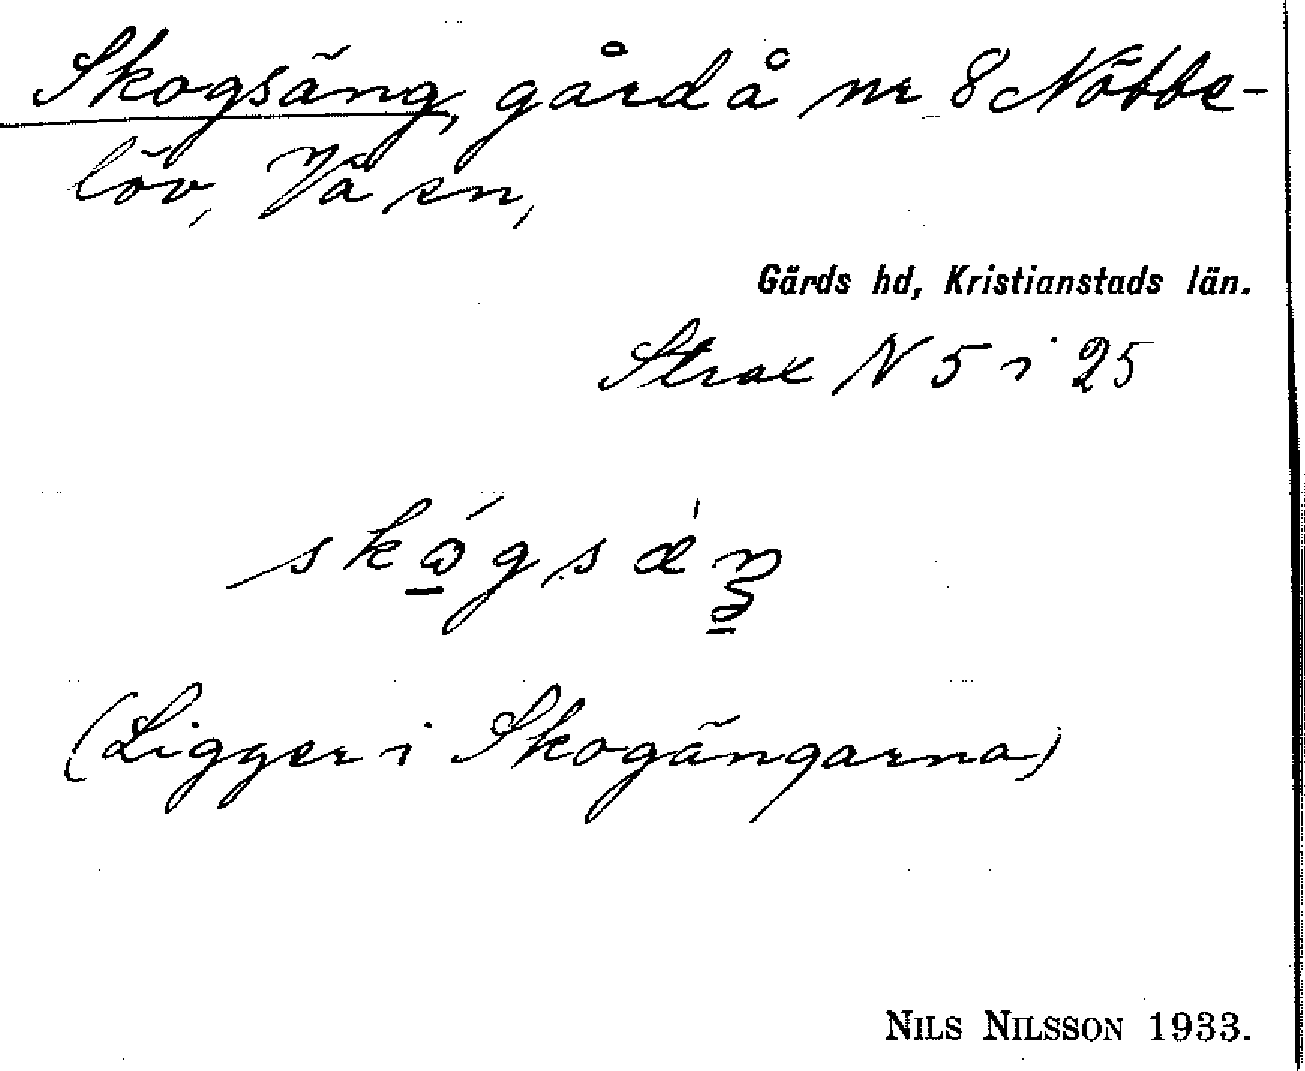 Skogsäng, gård å nr 8 Nöbbe-
löv, Vä sn,
Gärds hd, Kristianstads län.
N 5 i 25
(Ligger i Skogängarna)
NILS NILSSON 1933.